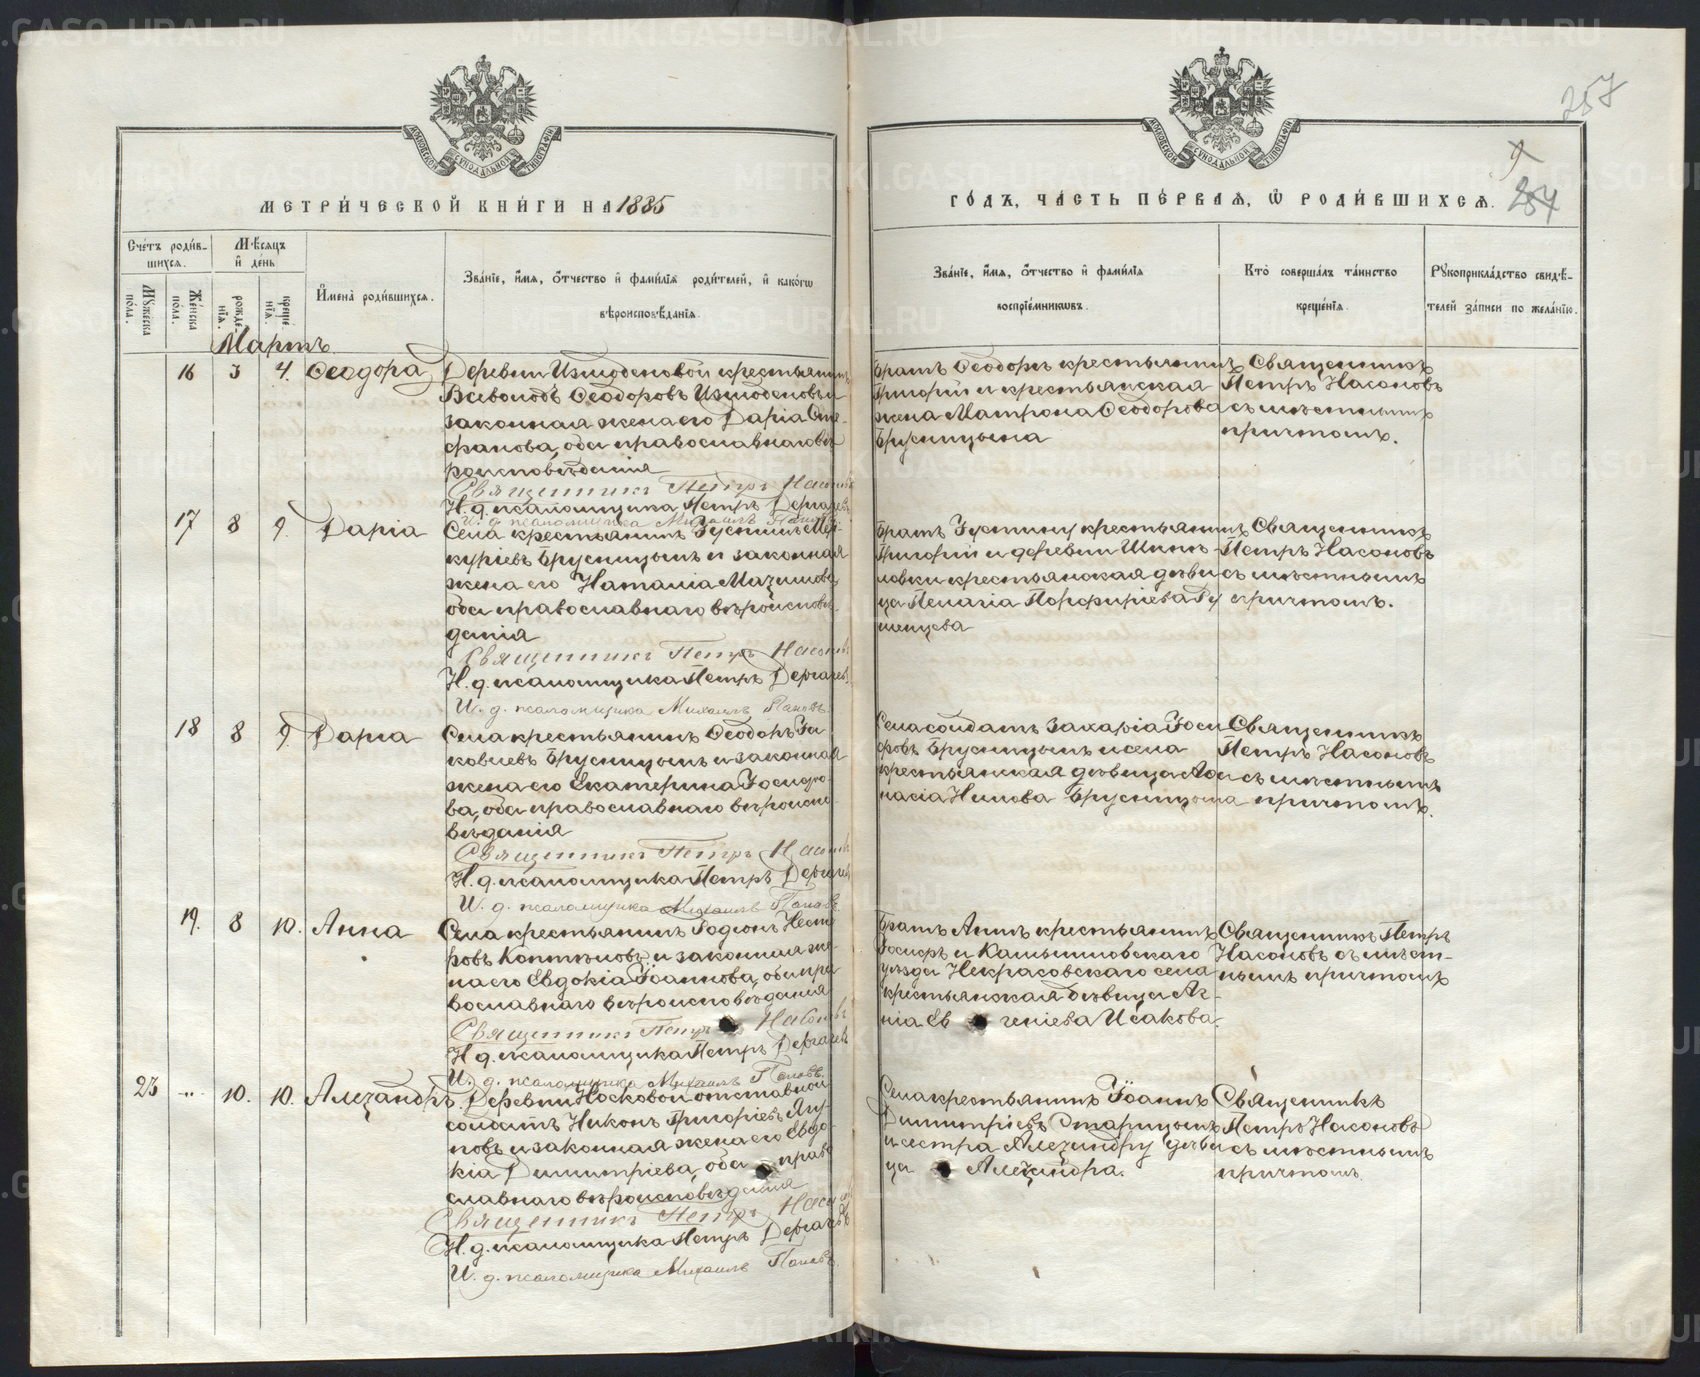 МЕТРИ́ЧЕСКОЙ КНИ́ГИ НА 1885
ГО́ДЪ, ЧА́СТЬ ПЕ́РВАЯ, Ѡ РОДИ́ВШИХСЯ.
257
Сче́тъ роди́в-
шихся.
Мѣ́сяцъ
и де́нь
Му́жеска
по́ла.
Же́нска
по́ла.
рожде-
нія.
креще-
нія.
Имена̀ роди́вшихся.
Зва́ніе, и́мя, о́тчество и фами́лія роди́телей, и како́гѡ
вѣроисповѣ́данія.
Зва́ніе, и́мя, о́тчество и фами́лія
воспріе́мниковъ.
Кто̀ соверша́лъ та́инство
креще́нія.
Рукоприкла́дство свидѣ́-
телей за́писи по жела́нію.
Мартъ.
16 3 4. Ѳеодора
Деревни Измоденовой крестьянинъ
Всеволодъ Ѳеодоровъ Измоденовъ и
законная жена его Дарія Сте-
фанова, оба православнаго вѣ
роисповѣданія
Священникъ Петръ Насоновъ
Н. д. псаломщика Петръ Дергачевъ
И. д. псаломщика Михаилъ Поповъ
Братъ Ѳеодоры крестьянинъ
Григорій и крестьянская
жена Матрона Ѳеодорова
Брусницына
Священникъ
Петръ Насоновъ
съ мѣстнымъ
причтомъ.
17 8 9. Дарія
Села крестьянинъ Іустинъ Мер-
куріевъ Брусницынъ и законная
жена его Наталія Максимова
оба православнаго вѣроисповѣ-
данія
Священникъ Петръ Насоновъ
Н. д. псаломщика Петръ Дергачевъ
И. д. псаломщика Михаилъ Поповъ.
Братъ Іустину крестьянинъ
Григорій и деревни Шип-
ловки крестьянская дѣви
ца Пелагія Порфиріева
Священникъ
Петръ Насоновъ
съ мѣстнымъ
причтомъ.
18 8 9. Дарія
Села крестьянинъ Ѳеодоръ Іа
ковлевъ Брусницынъ и законная
жена его Екатерина Іосифо-
ва, оба православнаго вѣроиспо
вѣданія
Священникъ Петръ Насоновъ
Н. д. псаломщика Петръ Дергачевъ
И. д. псаломщика Михаилъ Поповъ
Села солдатъ Захарія Іоси
фовъ Брусницынъ и села
крестьянская дѣвица Аѳа
насія Нилова Брусницына
Священникъ
Петръ Насоновъ
съ мѣстнымъ
причтомъ.
19. 8 10. Анна
Села крестьянинъ Родіонъ Несто
ровъ Коптѣловъ и законная же
на его Евдокія Іоаннова, оба пра
вославнаго вѣроисповѣданія
Священникъ Петръ Насоновъ
Н. д. псаломщика Петръ Дергачевъ
И. д. псаломщика Михаилъ Поповъ.
Братъ Аннѣ крестьянинъ
и Камышловскаго
уѣзда Некрасовскаго села
крестьянская дѣвица Аг-
нія Евгеніева Исакова.
Священникъ Петръ
Насоновъ съ мѣст-
нымъ причтомъ
23 „ 10. 10. Александръ.
Деревни Носковой отставной
солдатъ Никонъ Григоріевъ
новъ и законная жена его Евдо-
кія Димитріева, оба право
славнаго вѣроисповѣданія
Священникъ Петръ Насоновъ
Н. д. псаломщика Петръ Дергачевъ
И. д. псаломщика Михаилъ Поповъ.
Села крестьянинъ Іоаннъ
Димитріевъ Старицынъ
и сестра Александру дѣви
ца Александра.
Священникъ
Петръ Насоновъ
съ мѣстнымъ
причтомъ.